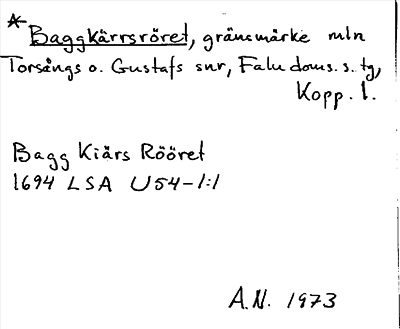 * Baggkärrsröret, gränsmärke mln
Torsångs o. Gustafs snr, Falu doms. s. tg,
Kopp. l.
Bagg Kiärs Rööret
1694 LSA U54-1:1
A.N. 1973